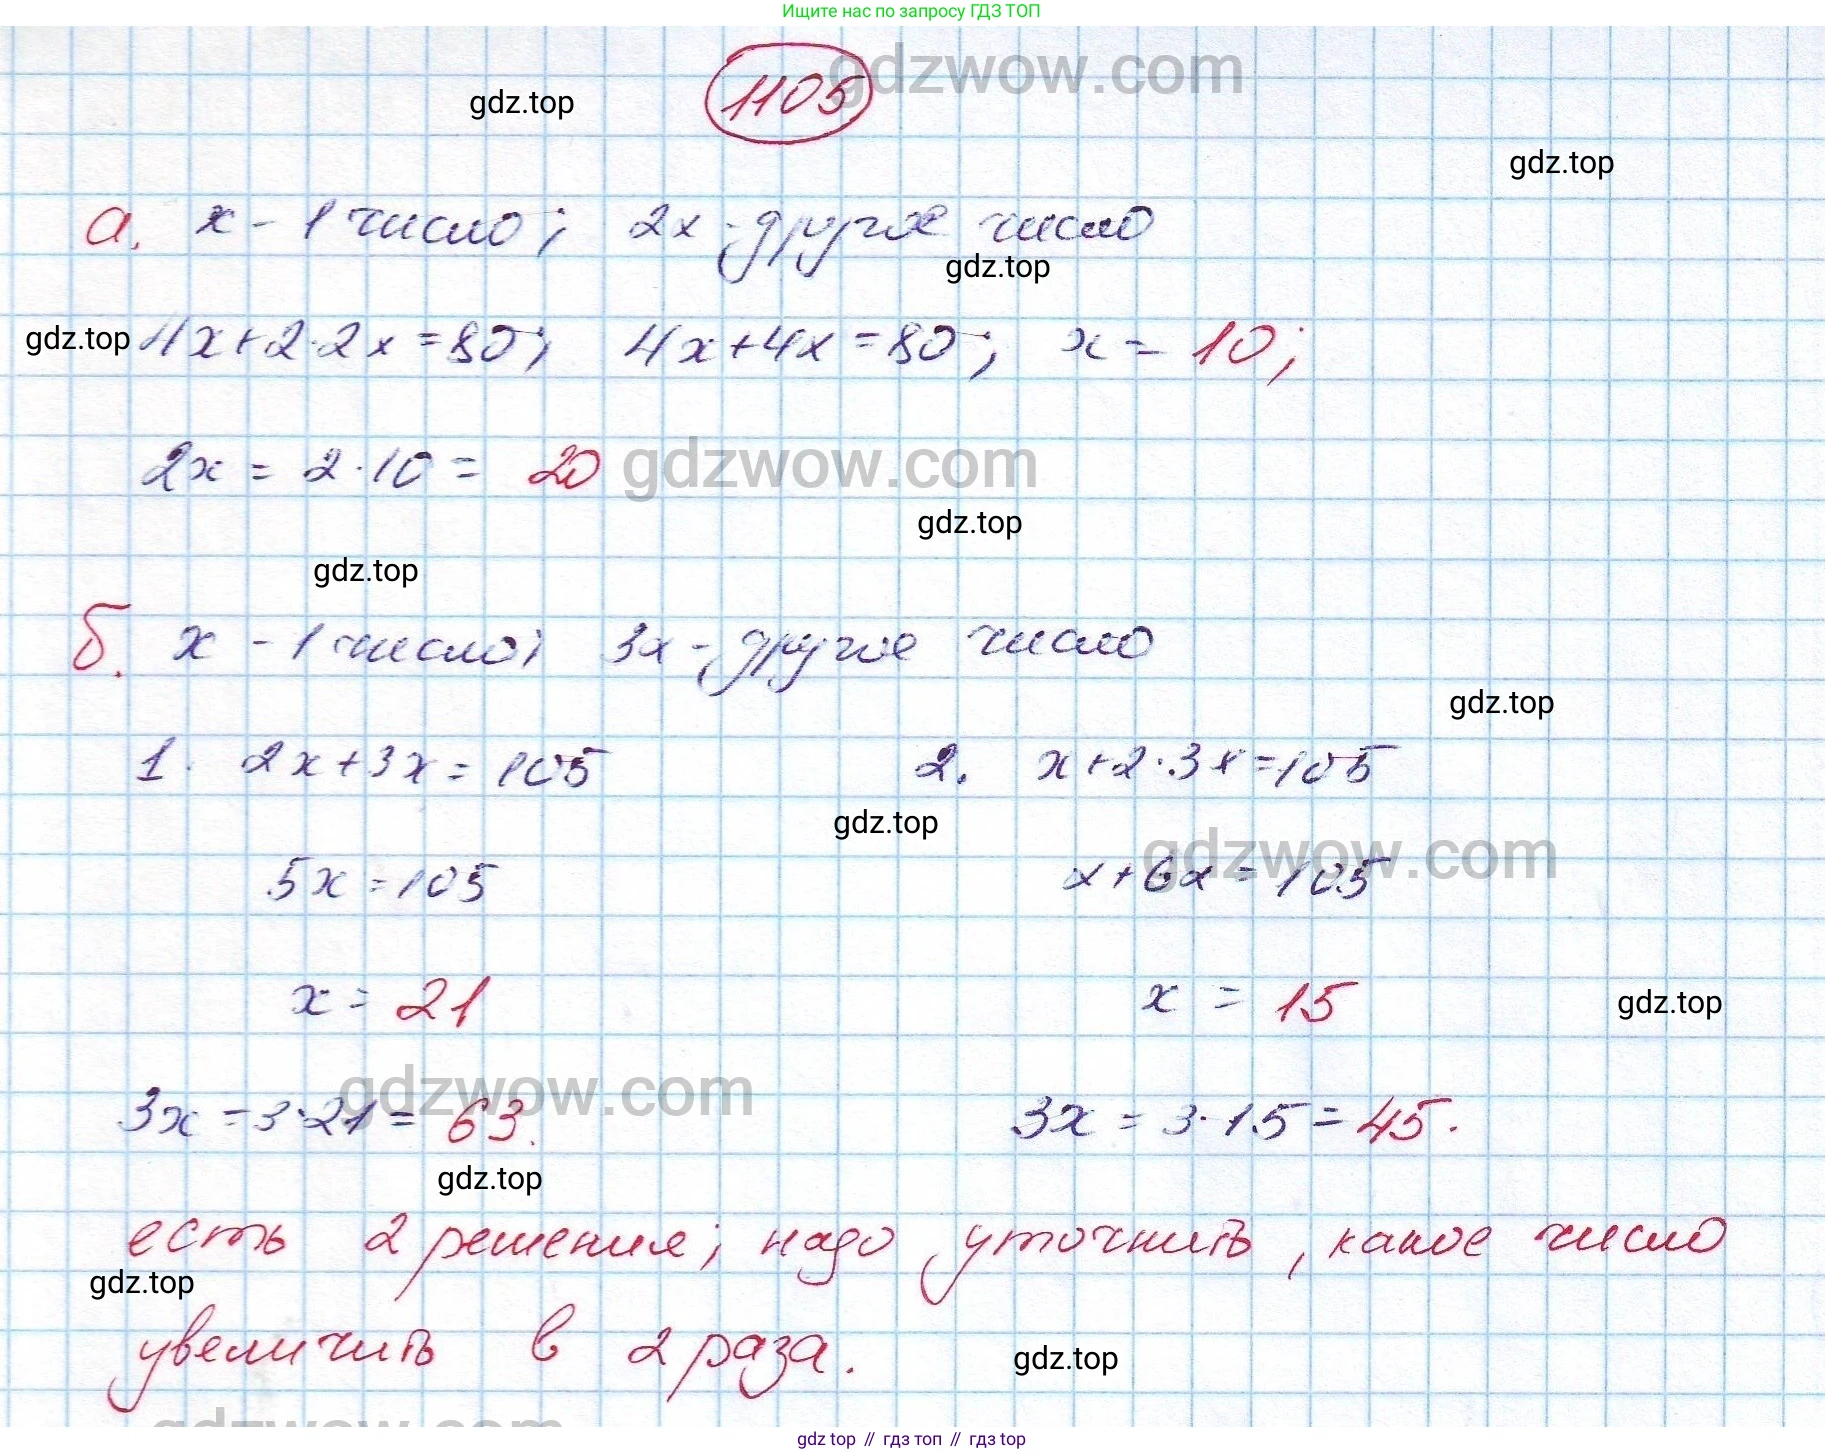 Ищите нас по запросу ГДЗ ТОП
gdzwow.com
1105
gdz.top
gdz.top
а. x - 1 число; 2x - другое число
gdz.top
gdz.top
4x+2·2x=80; 4x+4x=80; x=10;
2x = 2·10 = 20
gdzwow.com
gdz.top
gdz.top
б. x - 1 число; 3x - другое число
gdz.top
1. 2x+3x=105
2. x+2·3x=105
gdz.top
gdzwow.com
5x=105
x+6x=105
x = 21
x = 15
gdz.top
gdzwow.com
3x=3·21=63.
3x=3·15=45.
gdz.top
есть 2 решения; надо уточнить, какое число
gdz.top
увеличить в 2 раза.
gdz.top
gdzwow.com
gdz top // гдз топ // гдз top